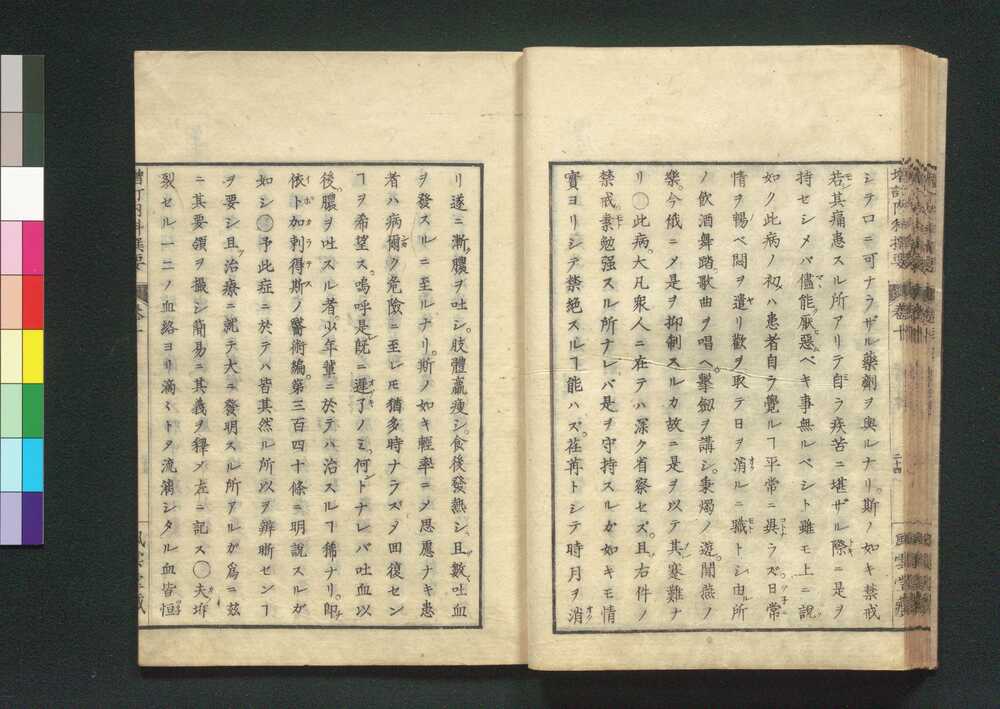 シテロニ可ナラザル藥劑ヲ與ルナリ。斯ノ如キ禁戒
若其痛患スル所アリテ自ラ疾苦ニ堪ザル際ニ是ヲ
持セシメバ儘能厭惡ベキ事無ルベシト雖モ上ニ說
如ク此病ノ初ハ患者自ラ覺ルヿ平常ニ異ラズ日常
情ヲ暢ベ悶ヲ遣リ歡ヲ取テ日ヲ消ルニ職トシ由所
ノ飲酒舞踏。歌曲ヲ唱ヘ。擊劔ヲ講シ。秉燭ノ遊。鬧燕ノ
樂。今俄ニメ是ヲ抑制スルカ故ニ是ヲ以テ其寔難ナ
リ◯此病。大凡衆人ニ在テハ深ク省察セズ。且右件ノ
禁戒素勉强スル所ナレバ是ヲ守持スルガ如キモ情
實ヨリシテ禁絕スルヿ能ハズ。荏苒トシテ時月ヲ消
二十四
風雲堂藏
リ遂ニ漸。膿ヲ吐シ。肢體羸瘦シ。食後發熱シ。且數吐血
ヲ發スルニ至ルナリ。斯ノ如キ輕率ニシテ思慮ナキ患
者ハ病爾ク危險ニ至レモ猶多時ナラズメ回復セン
ヿヲ希望ス。嗚呼是旣ニ遲了ノミ。何トナレバ吐血以
後。膿ヲ吐スル者。少年輩ニ於テハ治スルヿ稀ナリ。卽
依卜加剌得斯ノ醫術編。第三百四十條ニ明說スルガ
如シ◯予此症ニ於テハ皆其然ル所以ヲ辨晣センヿ
ヲ要シ且治療ニ就テ大ニ發明スル所アルガ爲ニ玆
ニ其要領ヲ撮シ簡易ニ其義ヲ釋メ左ニ記ス◯夫坼
裂セル一二ノ血絡ヨリ滴々トメ流漓シタル血皆恒